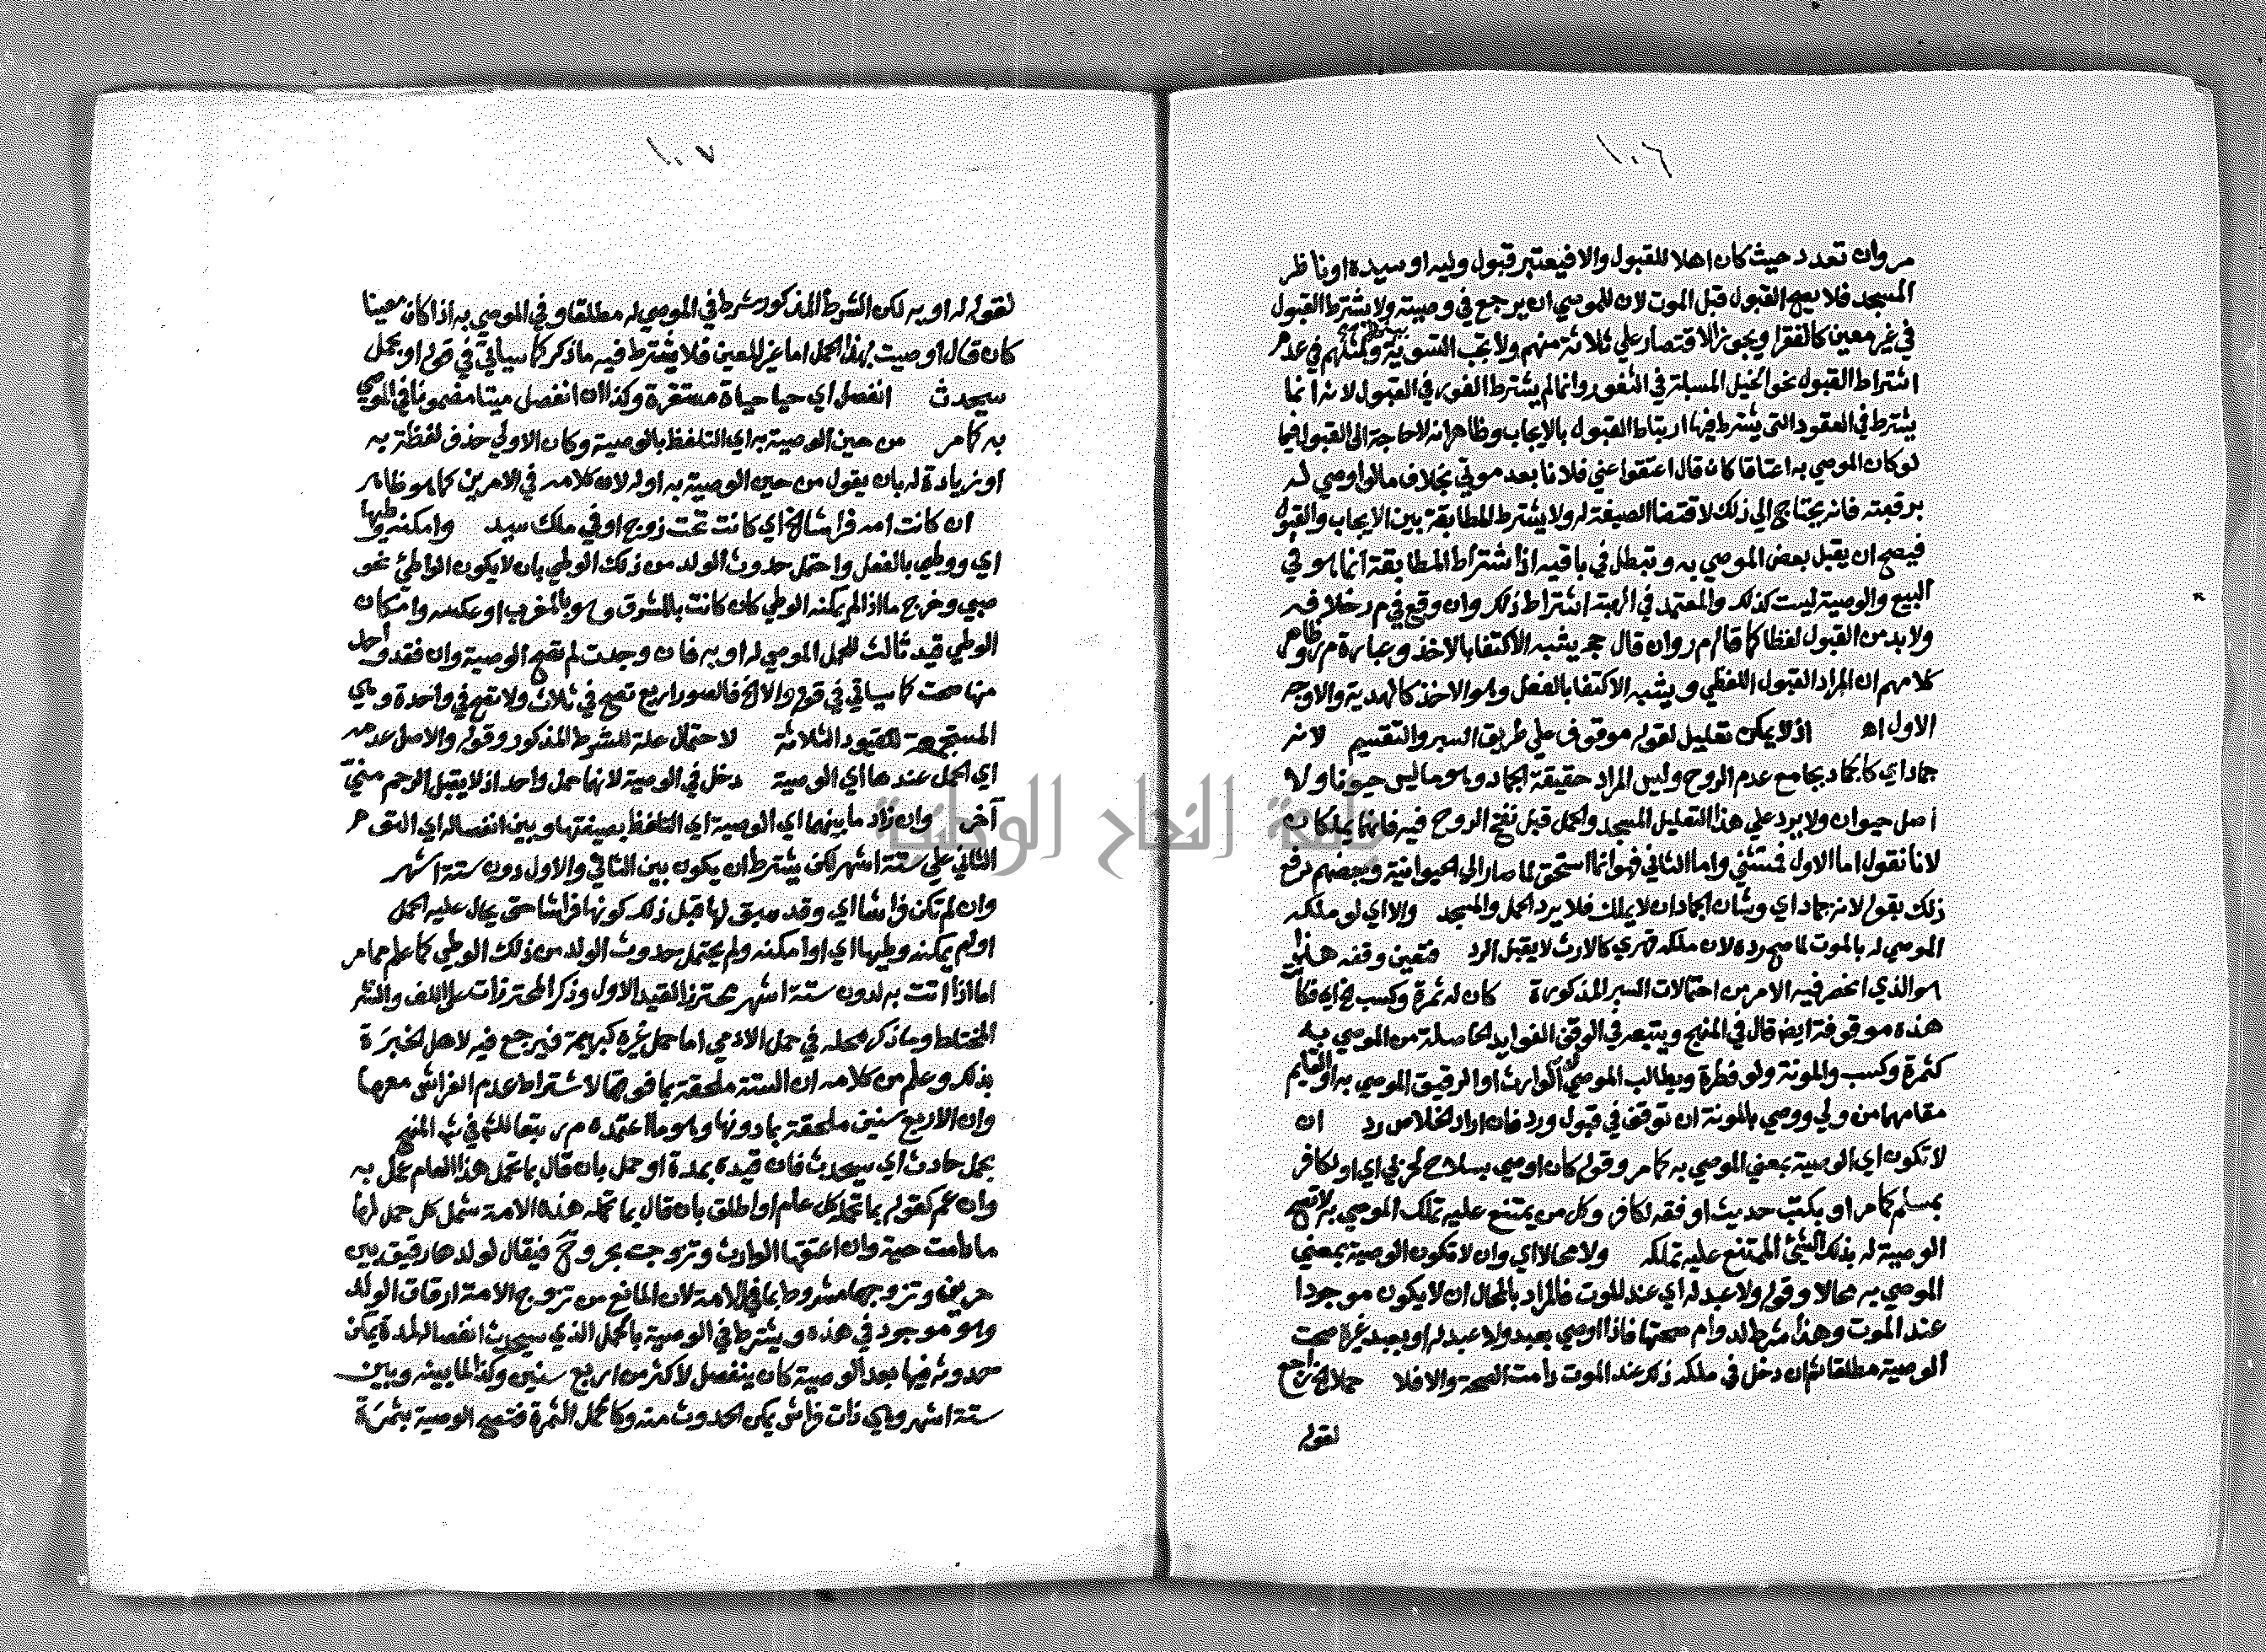 ١٠٦
مر وان تعدد حيث كان اهلا للقبول والا فيعتبر قبول وليه او سيده او ناظر
المسجد فلا يصح القبول قبل الموت لان للموصي ان يرجع في وصيته ولا يشترط القبول
في غير معين كالفقرا ويجوز الاقتصار علي ثلاثة منهم ولا تجب التسوية بينهم ومثلهم في عدم
اشتراط القبول نحو الخيل المسبلة في الثغور وانما لم يشترط الفور في القبول لانه انما
يشترط في العقود التي يشترط فيها ارتباط القبول بالايجاب وظاهر انه لا حاجة الى القبول فيما
لو كان الموصي به اعتاقا كان قال اعتقوا عني فلانا بعد موتي بخلاف ما لو اوصي له
برقبته فانه يحتاج الي ذلك لاقتضا الصيغة له ولا يشترط المطابقة بين الايجاب والقبول
فيصح ان يقبل بعض الموصي به وتبطل في باقيه اذ اشتراط المطابقة انما هو في
البيع والوصية ليست كذلك والمعتمد في الهبة اشتراط ذلك وان وقع في م ر خلافه
ولا بد من القبول لفظا كما قال م ر وان قال حج يشبه الاكتفا بالاخذ وعبارة م ر وظاهر
كلامهم ان المراد القبول اللفظي ويشبه الاكتفا بالفعل وهو الاخذ كالهدية والاوجه
الاول اه اذ لا يمكن تعليل لقوله موقوف علي طريق السبر والتقسيم لانه
جماد اي كالجماد بجامع عدم الروح وليس المراد حقيقة الجماد وهو ما ليس حيوانا ولا
اصل حيوان ولا يرد علي هذا التعليل المسجد والحمل قبل نفخ الروح فيه فانهما يملكان
لانا نقول اما الاول فمستثني واما الثاني فهو انما استحق لما صار الي الحيوانية وبعضهم دفع
ذلك بقوله لانه جماد اي وشان الجماد ان لا يملك فلا يرد الحمل والمسجد والا اي لو ملكه
الموصي له بالموت لما صح رده لان ملكه قهري كالارث لا يقبل الرد فتعين وقفه هذا
هو الذي انحصر فيه الامر من احتمالات السبر المذكورة كان له ثمرة وكسب الخ اي فكا
هذه موقوفة ايضا قال في المنهج ويتبعه في الوقف الفوايد الحاصلة من الموصي به
كثمرة وكسب والمونة ولو فطرة ويطالب الموصي له الوارث او الرقيق الموصي به او القايم
مقامهما من ولي ووصي بالمونة ان توقف في قبول ورد فان اراد الخلاص رد ان
لا تكون اي الوصية بمعني الموصي به كما مر وقوله كان اوصي بسلاح لحربي اي او لكافر
بمسلم كما مر او بكتب حديث او فقه لكافر وكل من يمتنع عليه تملك الموصي به لا تصح
الوصية له بذلك الشئ الممتنع عليه تملكه ولا محالا اي وان لا تكون الوصية بمعني
الموصي به محالا وقوله ولا عبد له اي عند الموت فالمراد بالمحال ان لا يكون موجودا
عند الموت وهذا شرط لدوام صحتها فاذا اوصي بعبد ولا عبد له او بعبد غيره صحت
الوصية مطلقا ثم ان دخل في ملكه ذلك عند الموت دامت الصحة والا فلا حملا الخ راجع
لقوله
١٠٧
لقوله له او به لكن الشرط المذكور شرط في الموصي له مطلقا وفي الموصي به اذا كان معينا
كان قال اوصيت بهذا الحمل اما غير المعين فلا يشترط فيه ما ذكر كما سياتي في قوله او بحمل
سيحدث انفصل اي حيا حياة مستقرة وكذا ان انفصل ميتا مضمونا في الموصي
به كما مر من حين الوصية به اي التلفظ بالوصية وكان الاولي حذف لفظة به
او زيادة له بان يقول من حين الوصية به او له لان كلامه في الامرين كما هو ظاهر
ان كانت امه فراشا الخ اي كانت تحت زوج او في ملك سيد وامكنه وطيها
اي ووطي بالفعل واحتمل حدوث الولد من ذلك الوطي بان لا يكون الواطئ نحو
صبي وخرج ما اذا لم يمكنه الوطي كان كانت بالمشرق وهو بالمغرب او عكسه وامكان
الوطي قيد ثالث للحمل الموصي له او به فان وجدت لم تصح الوصية وان فقد واحد
منها صحت كما سياتي في قوله والا الخ فالصور اربع تصح في ثلاث ولا تصح في واحدة وهي
المستجمعة للقيود الثلاثة لاحتمال علة للشرط المذكور وقوله والاصل عدمه
اي الحمل عندها اي الوصية دخل في الوصية لانهما حمل واحد اذ لا يقبل الرحم منيّ
آخر وان زاد ما بينهما اي الوصية اي التلفظ بصيغتها وبين انفصاله اي التوم
الثاني علي ستة اشهر لكن يشترط ان يكون بين الثاني والاول دون ستة اشهر
وان لم تكن فراشا اي وقد سبق لها قبل ذلك كونها فراشا حتي يحال عليه الحمل
او لم يمكنه وطيها اي او امكنه ولم يحتمل حدوث الولد من ذلك الوطي كما علم مما مر
اما اذا اتت به لدون ستة اشهر محترز القيد الاول وذكر المحترزات علي اللف والنشر
المختلط وما ذكر محله في حمل الادمي اما حمل غيره كبهيمة فيرجع فيه لاهل الخبرة
بذلك وعلم من كلامه ان الستة ملحقة بما فوقها لاشتراط عدم الفراش معها
وان الاربع سنين ملحقة بما دونها وهو ما اعتمده م ر تبعا للشـ في شـ المنهج
بحمل حادث اي سيحدث فان قيده بمدة او حمل بان قال بما تحمل هذا العام عمل به
وان عمم كقوله بما تحمله كل عام او اطلق بان قال بما تحمله هذه الامة شمل كل حمل لها
ما دامت حية وان اعتقها الوارث وتزوجت بحر وحينئذ فيقال لولدها رقيق بين
حرين وتزوجها مشروط بما في الامة لان المانع من تزوج الامة ارقاق الولد
وهو موجود في هذه ويشترط في الوصية بالحمل الذي سيحدث انفصاله لمدة يمكن
حدوثه فيها بعد الوصية كان ينفصل لاكثر من اربع سنين وكذا لما بينه وبين
ستة اشهر وهي ذات فراش يمكن الحدوث منه وكالحمل الثمرة فتصح الوصية بثمرة
جامعة النجاح الوطنية